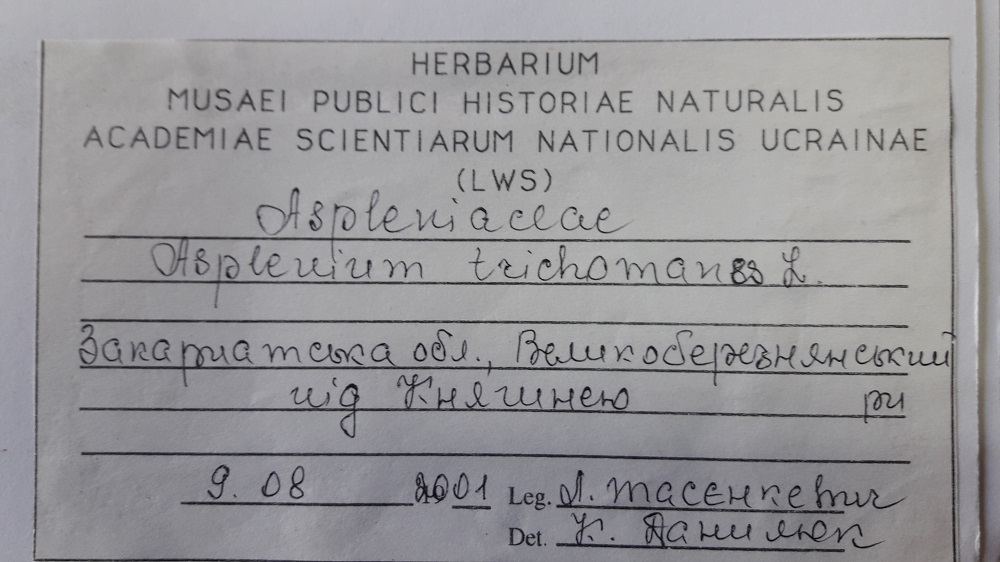 HERBARIUM
MUSAEI PUBLICI HISTORIAE NATURALIS
ACADEMIAE SCIENTIARUM NATIONALIS UCRAINAE
(LWS)
Aspleniaceae
Asplenium trichomanes L.
Закарпатська обл., Великоберезнянський
під Княгинею рн
9. 08 2001 Leg. Л. Тасєнкевич
Det. К. Данилюк